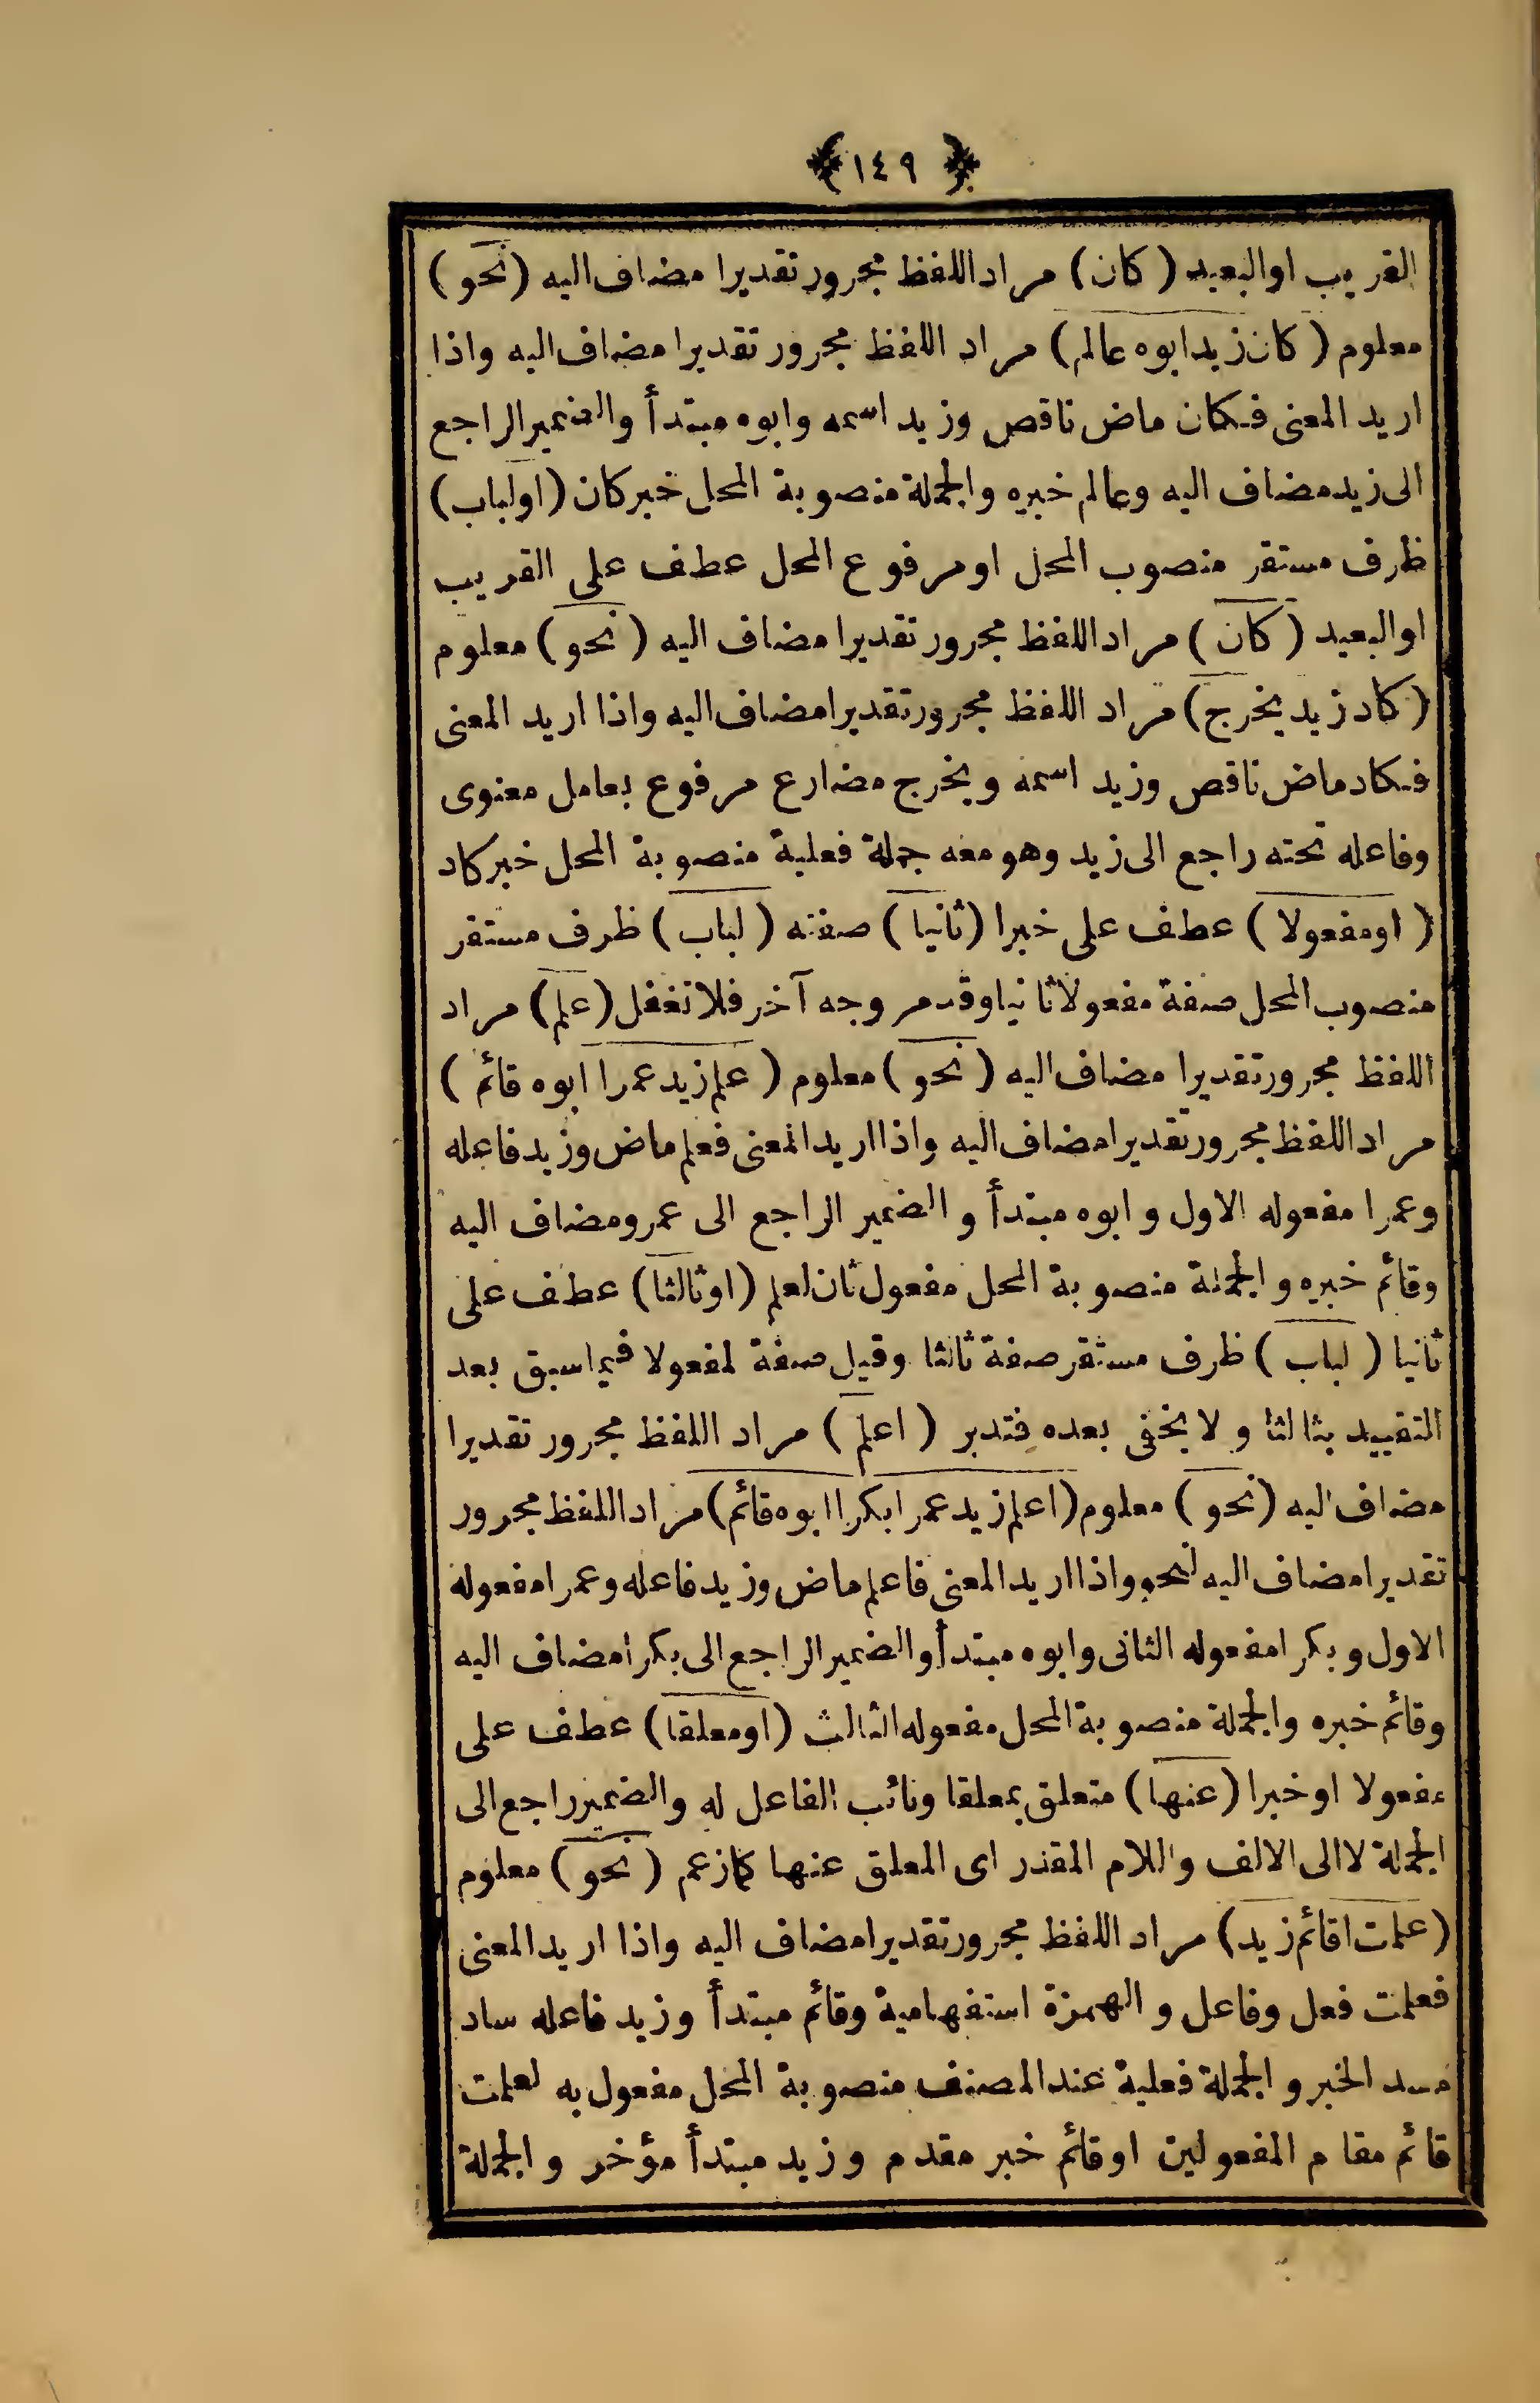 ﴿١٤٩﴾
القريب اوالبعيد (كان) مراد اللفظ مجرور تقديرا مضاف اليه (نحو)
معلوم (كان زيد ابوه عالم) مراد اللفظ مجرور تقديرا مضاف اليه واذا
اريد المعنى فكان ماض ناقص وزيد اسمه وابوه مبتدأ والضمير الراجع
الى زيد مضاف اليه وعالم خبره والجملة منصوبة المحل خبر كان (اولباب)
ظرف مستقر منصوب المحل اومرفوع المحل عطف على القريب
اوالبعيد (كان) مراد اللفظ مجرور تقديرا مضاف اليه (نحو) معلوم
(كاد زيد يخرج) مراد اللفظ مجرور تقديرا مضاف اليه واذا اريد المعنى
فكاد ماض ناقص وزيد اسمه ويخرج مضارع مرفوع بعامل معنوى
وفاعله تحته راجع الى زيد وهو معه جملة فعلية منصوبة المحل خبر كاد
(اومفعولا) عطف على خبرا (ثانيا) صفته (لباب) ظرف مستقر
منصوب المحل صفة مفعولا ثانيا وقد مر وجه آخر فلا تغفل (علم) مراد
اللفظ مجرور تقديرا مضاف اليه (نحو) معلوم (علم زيد عمرا ابوه قائم)
مراد اللفظ مجرور تقديرا مضاف اليه واذا اريد المعنى فعلم ماض وزيد فاعله
وعمرا مفعوله الاول وابوه مبتدأ والضمير الراجع الى عمرو مضاف اليه
وقائم خبره والجملة منصوبة المحل مفعول ثان لعلم (اوثالثا) عطف على
ثانيا (لباب) ظرف مستقر صفة ثالثا وقيل صفة لمفعولا فيما سبق بعد
التقييد بثالثا ولا يخفى بعده فتدبر (اعلم) مراد اللفظ مجرور تقديرا
مضاف اليه (نحو) معلوم (اعلم زيد عمرا بكرا ابوه قائم) مراد اللفظ مجرور
تقديرا مضاف اليه لنحو واذا اريد المعنى فاعلم ماض وزيد فاعله وعمرا مفعوله
الاول وبكرا مفعوله الثانى وابوه مبتدأ والضمير الراجع الى بكرا مضاف اليه
وقائم خبره والجملة منصوبة المحل مفعوله الثالث (اومعلقا) عطف على
مفعولا اوخبرا (عنها) متعلق بمعلقا ونائب الفاعل له والضمير راجع الى
الجملة لا الى الالف واللام المقدر اى المعلق عنها كما زعم (نحو) معلوم
(علمت اقائم زيد) مراد اللفظ مجرور تقديرا مضاف اليه واذا اريد المعنى
فعلمت فعل وفاعل والهمزة استفهامية وقائم مبتدأ وزيد فاعله ساد
مسد الخبر والجملة فعلية عند المصنف منصوبة المحل مفعول به لعلمت
قائم مقام المفعولين اوقائم خبر مقدم وزيد مبتدأ مؤخر والجملة